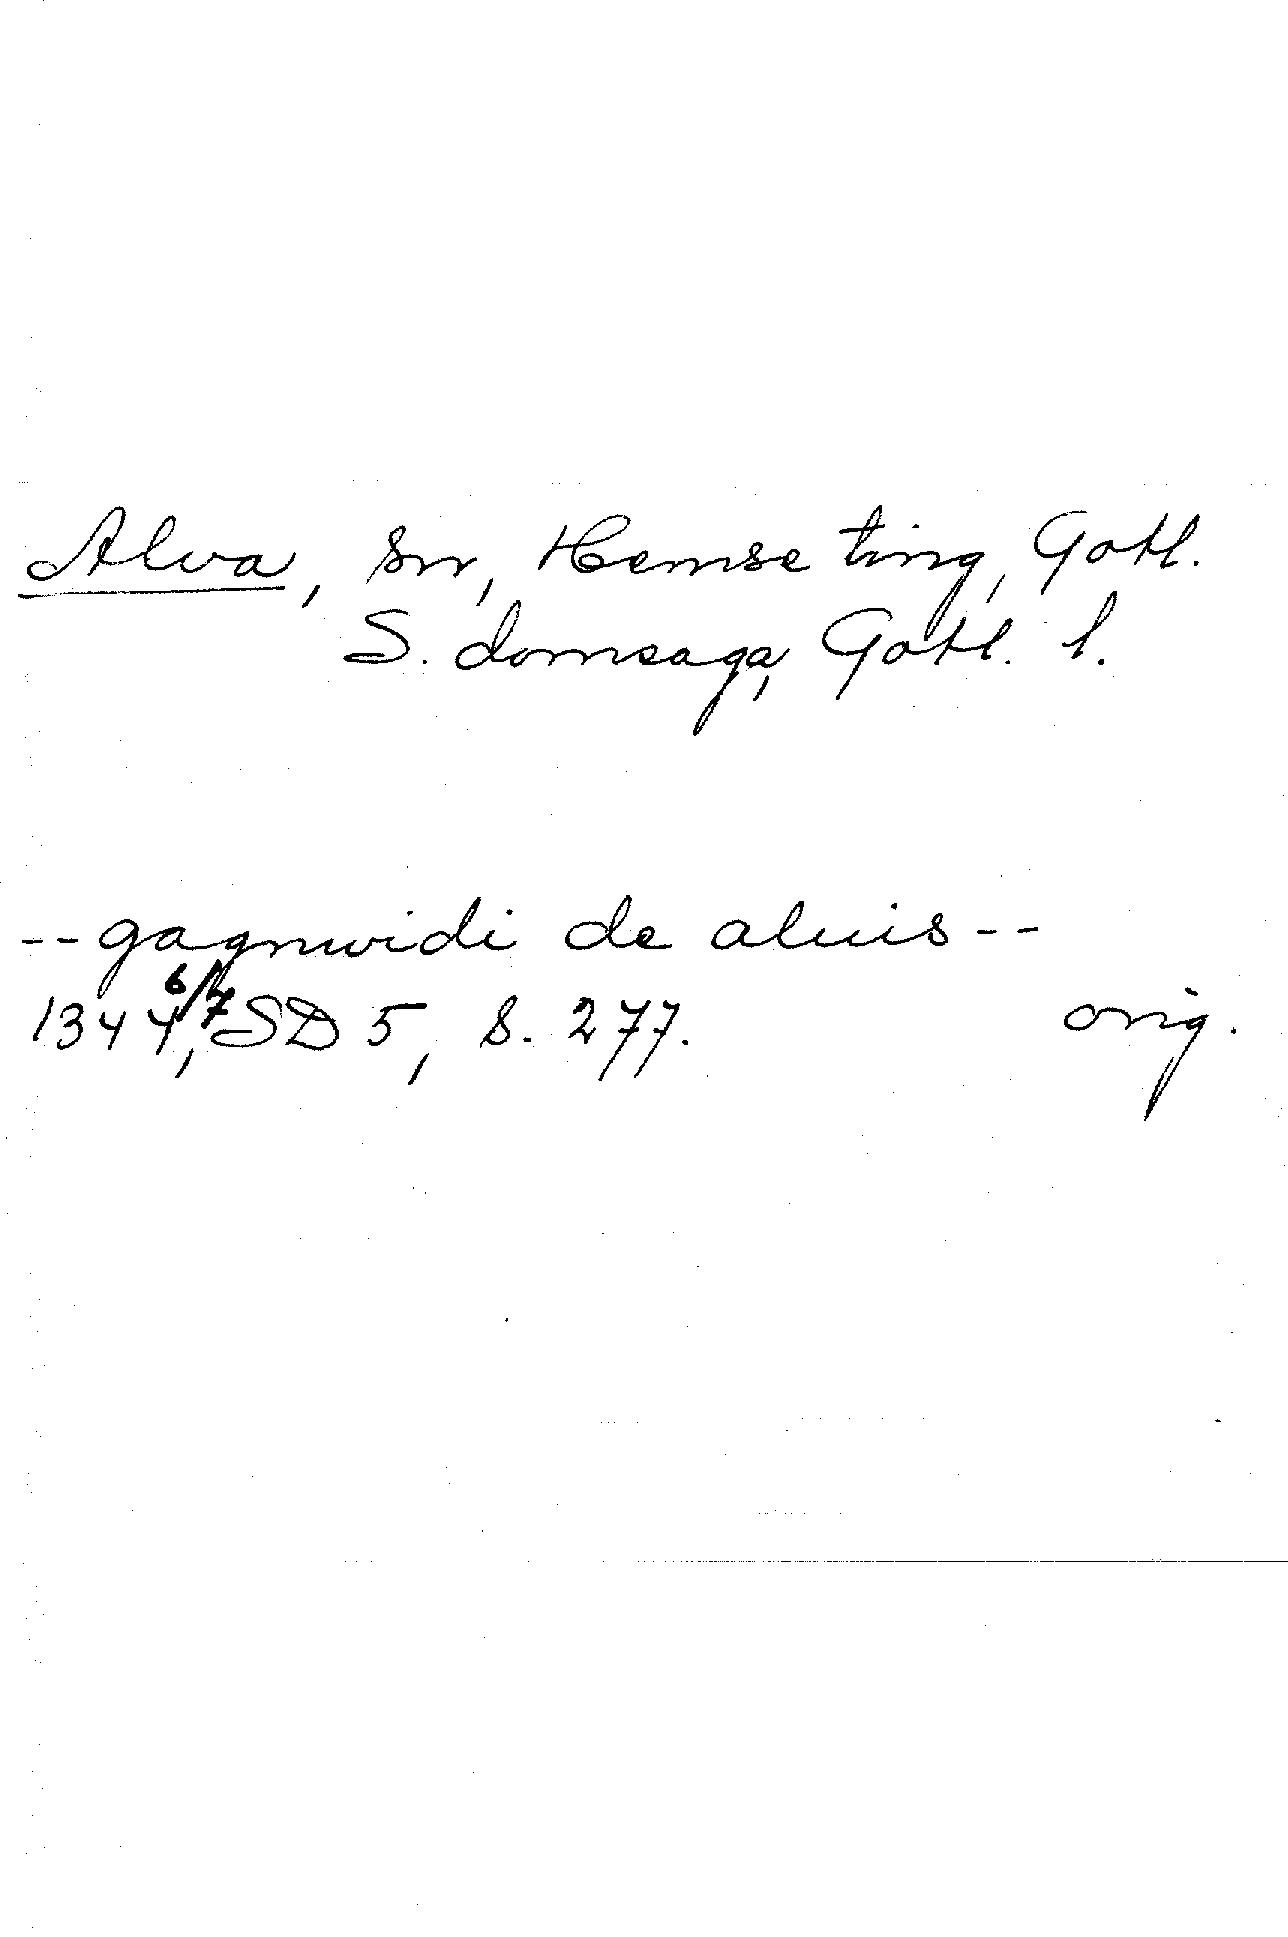 Alva, sn, Hemse ting, Gotl.
S. domsaga, Gotl. l.
--gagnuidi de aluis--
1344 6/7, SD 5, s. 277. orig.